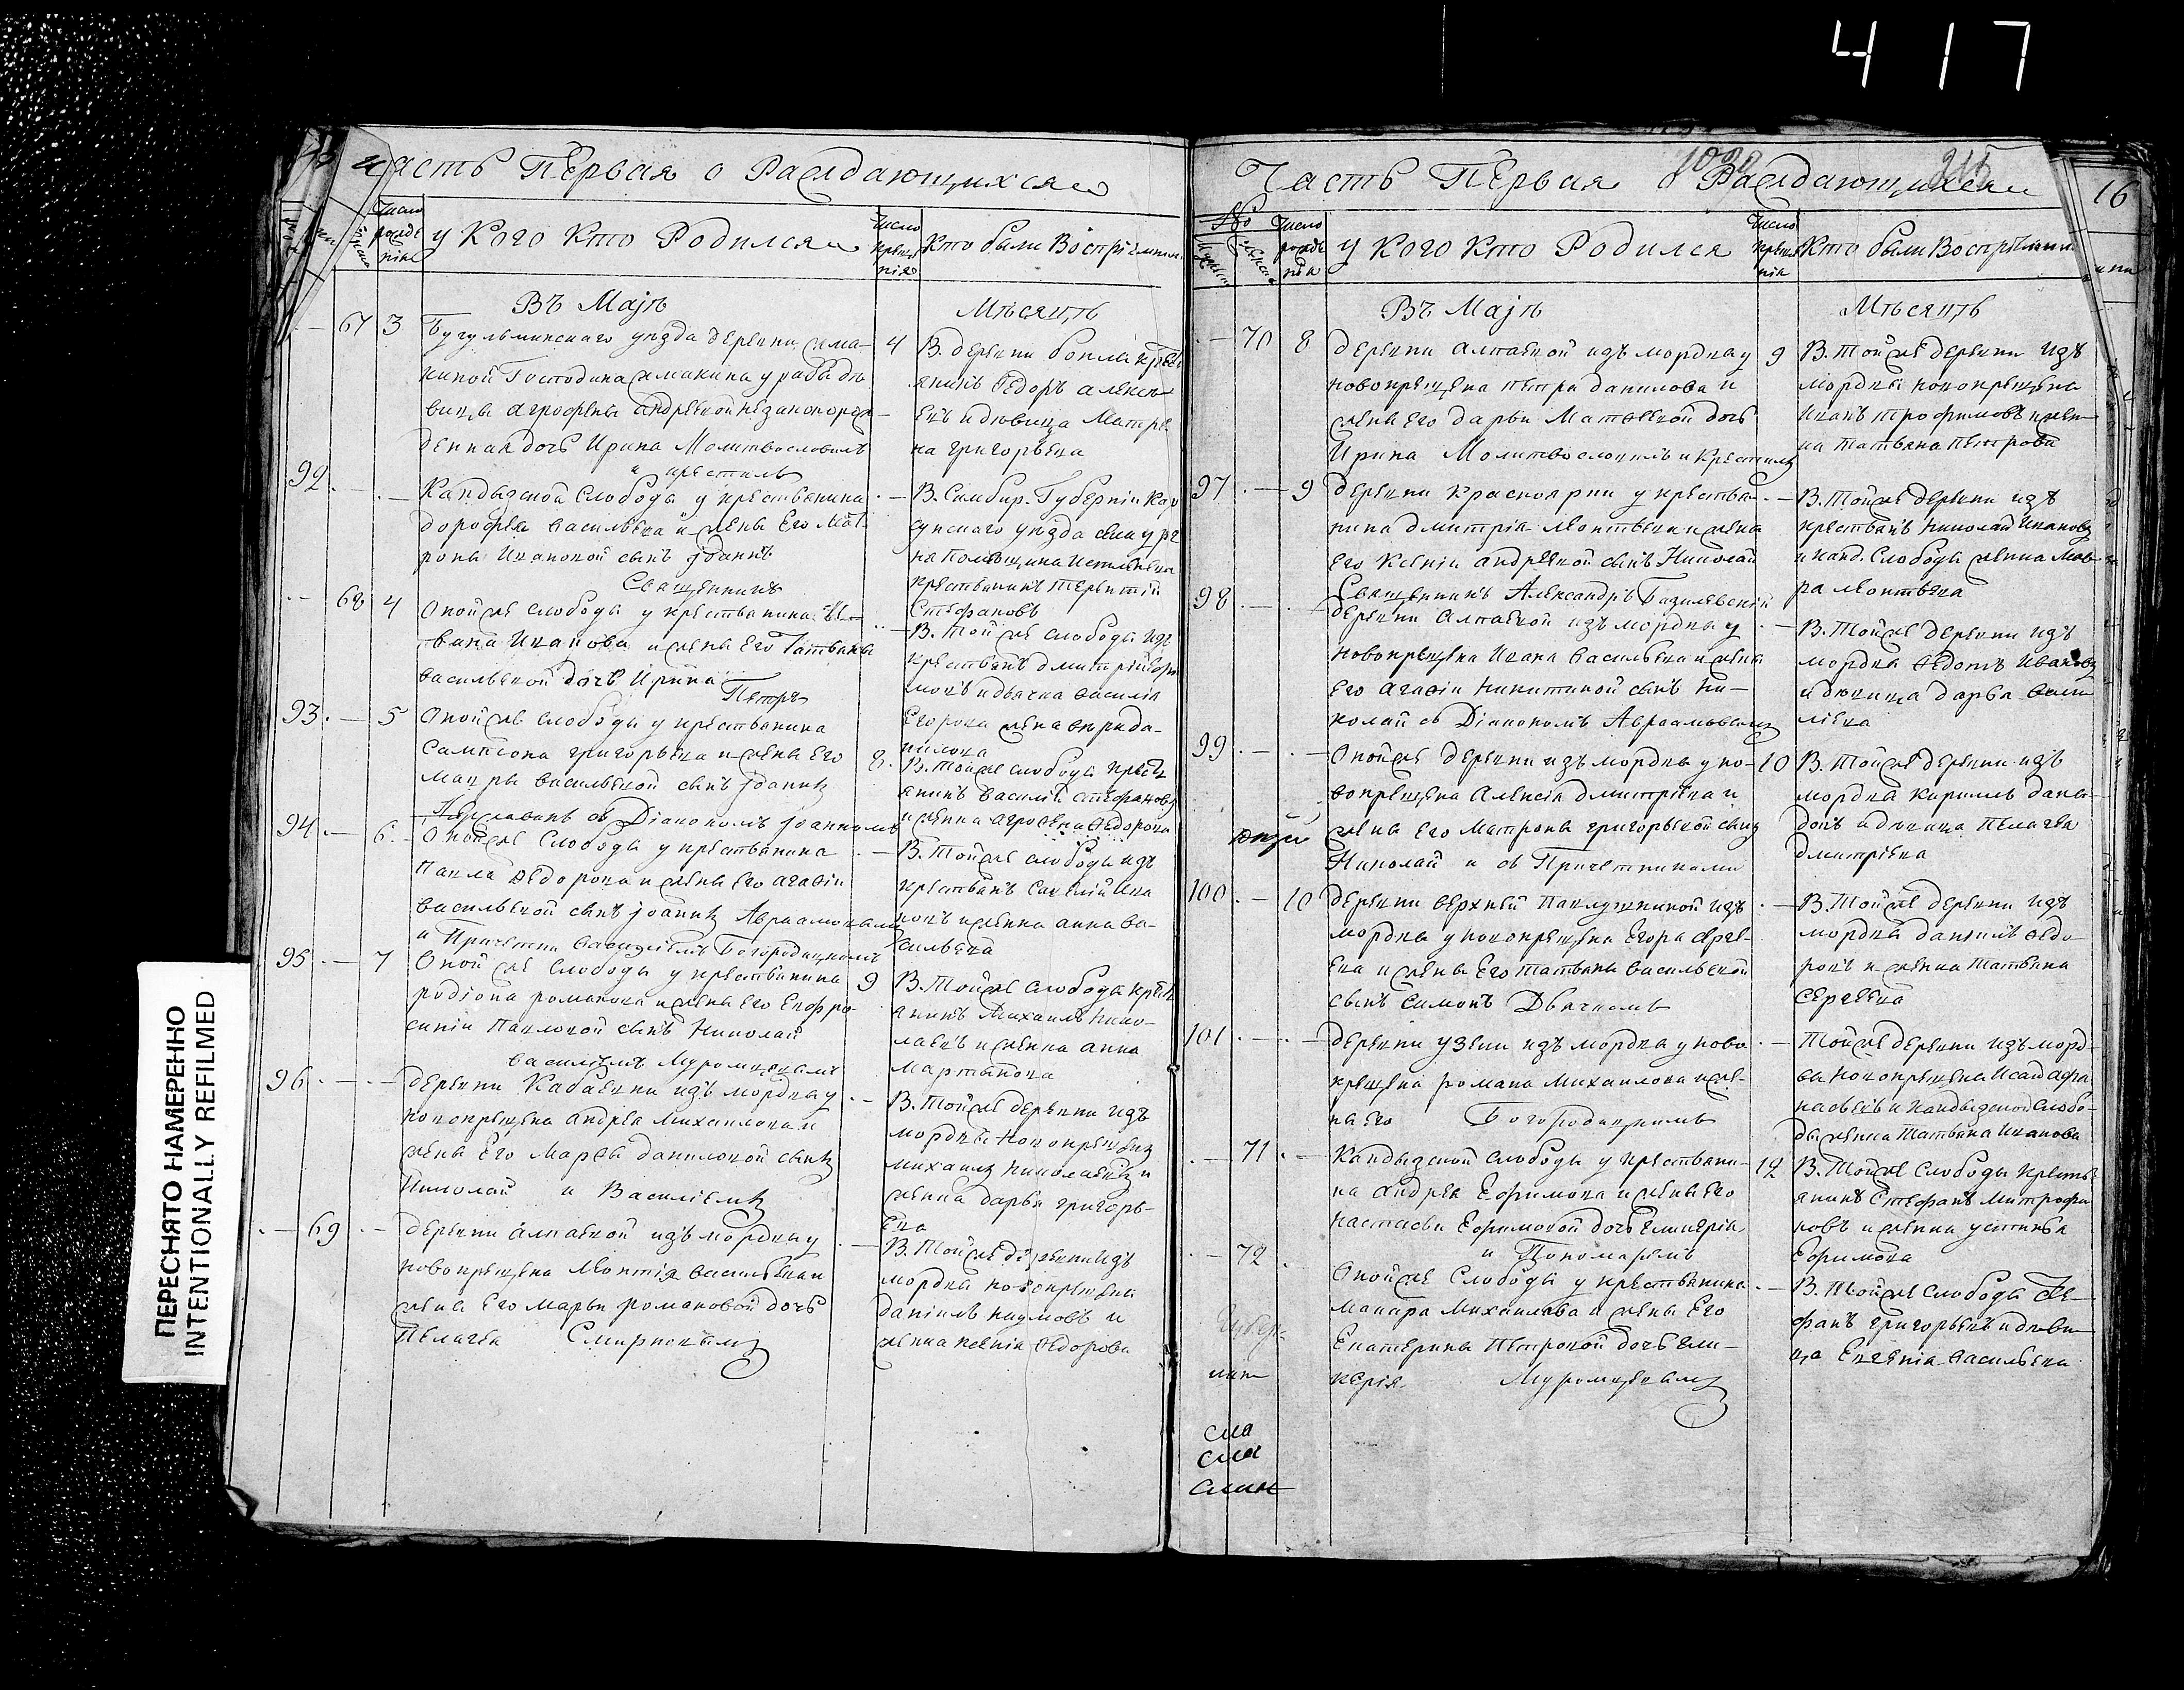 417
Часть Первая о Раждающихся
Число рождения
У Кого Кто Родился
Число крещения
Кто были Воспрiемники
Въ Маiѣ
Мѣсяцѣ
67 3
Бугульминскаго уѣзда деревни сема-
киной Господина семакина у рабы дѣ-
вицы агрофены андреевой незаконорож-
денная дочь Ирина Молитвословилъ
и крестилъ
4
В. деревни крестья
янинъ Федоръ алексѣ
евъ и дѣвица Матре
на григорьева
92
Кандызской Слободы у крестьянина
дорофея васильева и жены Его Мат-
роны Ивановой сынъ Iоаннъ
Священникъ
В. Симбир. Губернiи Кар
сунскаго уѣзда села уре
на Помещика
крестьянинъ Терентiй
Стефановъ
68 4
Оной же слободы у крестьянина
Иванова и жены Его Татьяны
васильевой дочь Ирина
Петръ
В. той же слободы изъ
крестьянъ дмитрiй
и дьячка василiя
Егорова жена
93 5
Оной же слободы у крестьянина
Сампсона григорьева и жены Его
мавры васильевой сынъ Iоаннъ
съ Дiакономъ Iоанномъ
8
В. той же слободы крестья
янинъ василiй стефановъ
и женка агрофена Федорова
94 6
Оной же Слободы у крестьянина
Павла Федорова и жены Его агафiи
васильевой сынъ Iоаннъ Авраамовымъ
и Причетники василiемъ Богородицкимъ
В. Той же слободы изъ
крестьянъ савелiй Ива
новъ и женка анна ва-
сильева
95 7
Оной же Слободы у крестьянина
родiона романова и жены Его Евфро-
синiи Павловой сынъ Николай
василiемъ Муромцевымъ
9
В. Той же слободы крестья
янинъ Михаилъ Нико-
лаевъ и женка анна
Мартынова
96
деревни Кабаевки изъ мордвы у
новокрещена андрея Михаилова и
жены Его Марфы даниловой сынъ
Николай и Василiемъ
В. Той же деревни изъ
мордвы новокрещенъ
михаилъ Николаевъ и
женка дарья григорь-
ева
69
деревни алпаевой изъ мордвы у
новокрещена Леонтiя васильева и
жены Его марьи романовой дочь
Пелагея Смирновымъ
В. Той же деревни изъ
мордвы новокрещены
данiилъ наумовъ и
женка ксенiя Федорова
ПЕРЕСНЯТО НАМЕРЕННО
INTENTIONALLY REFILMED
Часть Первая о Раждающихся
16
№
Число рождения
У Кого Кто Родился
Число крещения
Кто были Воспрiемники
Въ Маiѣ
Мѣсяцѣ
70 8
деревни алпаевой изъ мордвы у
новокрещена петра данилова и
жены Его дарьи Матвеевой дочь
Ирина Молитвословилъ и Крестилъ
9
В. Той же деревни изъ
мордвы новокрещены
Иванъ трофимовъ и жен-
ка татьяна Петрова
97 9
деревни Красноярки у крестья-
нина дмитрiя леонтьева и жены
Его Ксенiи андреевой сынъ Николай
Священникъ Александръ Базилевскiй
В. Той же деревни изъ
крестьянъ Николай Ивановъ
и канд. Слободы женка Мав-
ра леонтьева
98
деревни Алпаевой изъ мордвы у
новокрещена Ивана васильева и жены
Его агафiи никитиной сынъ Ни-
колай съ Дiакономъ Авраамовымъ
В. Той же деревни изъ
мордвы Федотъ Ивановъ
и дѣвица дарья васи
лiева
99
Оной же деревни изъ мордвы у но-
вокрещена Алексiя дмитрiева и
жены Его матроны григорьевой сынъ
Николай и съ Причетниками
10
В. Той же деревни изъ
мордвы кириллъ дани-
ловъ и дѣвица Пелагея
дмитрiева
100 10
деревни верхней Павлушкиной изъ
мордвы у новокрещена Егора серге-
ева и жены Его татьяны васильевой
сынъ Симонъ Дьячкомъ
В. Той же деревни изъ
мордвы данiилъ Федо-
ровъ и женка татьяна
сергеева
101
деревни узели изъ мордвы у ново
крещена романа Михаилова и же-
на его Богородицкимъ
Той же деревни изъ морд-
вы новокрещены Исай афа
насьевъ и Кандызской Слобо-
ды женка Татьяна Иванова
71
Кандызской слободы у крестьяни-
на андрея Ефимова и жены его
настасьи Ефимовой дочь гликерiя
и Пономаремъ
12
В. Той же Слободы кресть
янинъ Стефанъ Митрофа
новъ и женка устинья
Ефимова
72
Оной же Слободы у крестьянина
макара Михаилова и жены Его
Екатерины Петровой дочь гли-
керiя. Муромцевымъ
В. Той же слободы Сте-
фанъ григорьевъ и дѣви-
ца Евгенiя васильева
сла
сла